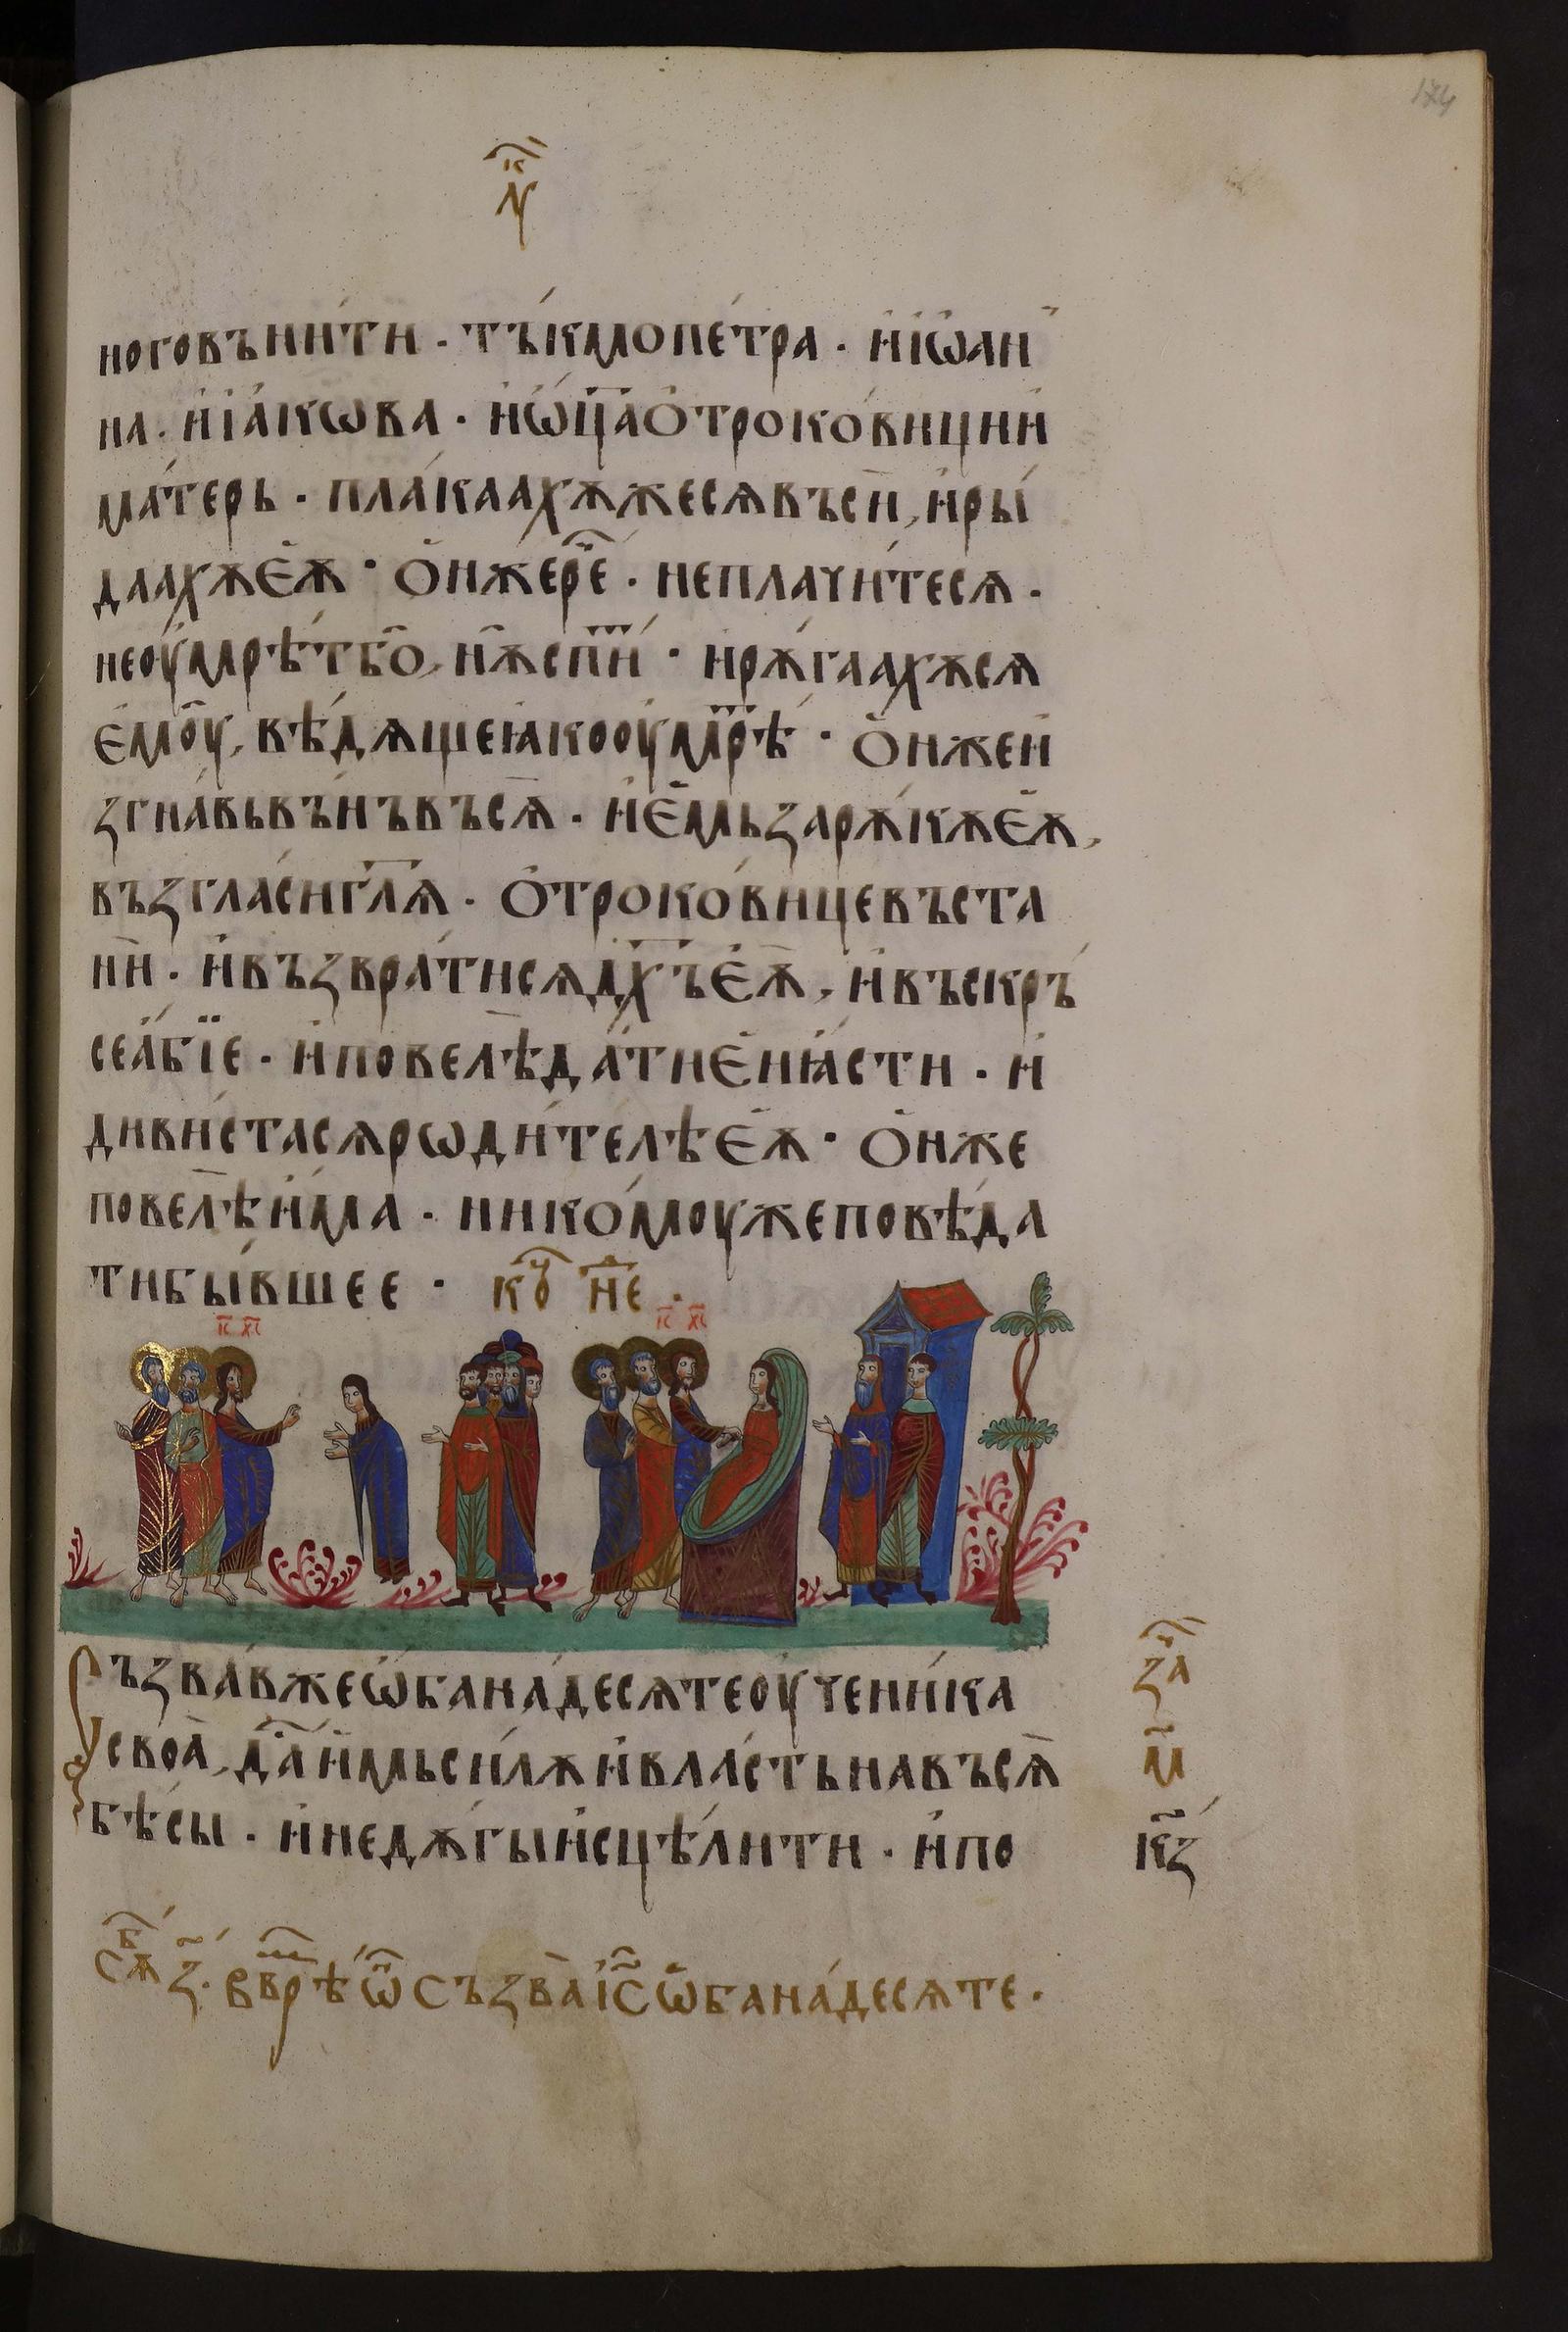 174
ноговъни́ти · тъ́кмопе́тра · и҆і҆ѡан
на · и҆і҆а́кѡва · и҆ѿц҃аѻ҆троко́вицѝи҆
ма́терь · пла́каахѫжесѧвъсѝ, и҆ры́
даахѫѐѫ · ѻ҆нжерⷱ҇е · неплачи́тесѧ ·
неоу҆мрѣ́тбо̑, нѫ̑спи́тъ · и҆рѫ́гаахѫсѧ
є҆моу̑, вѣ́дѧщеꙗ҆кооу҆мрⷮѣ · ѻ҆нжеи҆
згна́вьвъ́нъвъсѧ̀ · и҆є҆мьзарѫ́кѫѐѫ,
възгла́сигл҃ѧ · ѻ҆троко́вицевъста
нѝ · и҆възвра́тисѧдх҃ъѐѧ, и҆въскръ́
сеа́бїе · и҆повелѣ̀да́тиѐиꙗ҆́сти · и҆
диви́стасѧрѡди́телѣѐѧ · ѻ҆нже
повелѣ̀и҆́ма · нико́моужеповѣ́да
тибы́вшее · коⷰ҇ не ·
І҃С Х҃С
І҃С Х҃С
Съзва́вжеѡ҆бана́десѧтеоу҆чени́ка
своа̀, да́и҆мьси́лѫи҆вла́стьнавъсѧ̀
бѣ́сы · и҆недѫ́гыи҆сцѣ́лити · и҆по
за
м҃
к҃з
сѫⷠ҇ з҃ · в врⷨ҇ѣ ѡ҆́ съзва̀ і҆с҃ ѡ҆бана́десѧте ·